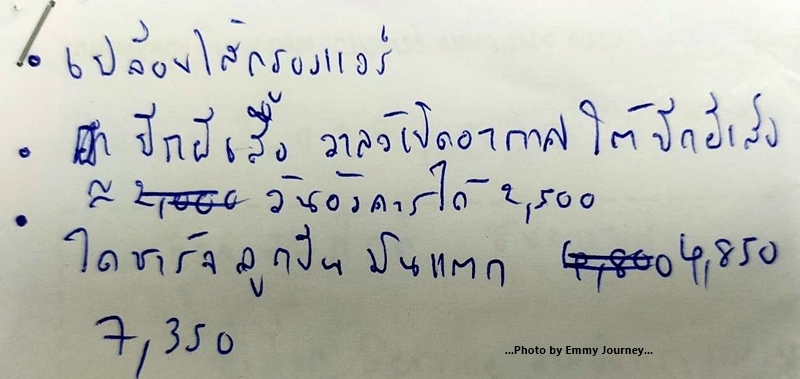 • เปลี่ยนไส้กรองแอร์
• ปีกผีเสื้อ วาลว์เปิดอากาศ ใต้ปีกผีเสื้อ
2,000 วันอังคารได้ 2,500
• ไดชาร์จ ลูกปืน มันแตก 4,850
7,350
...Photo by Emmy Journey...